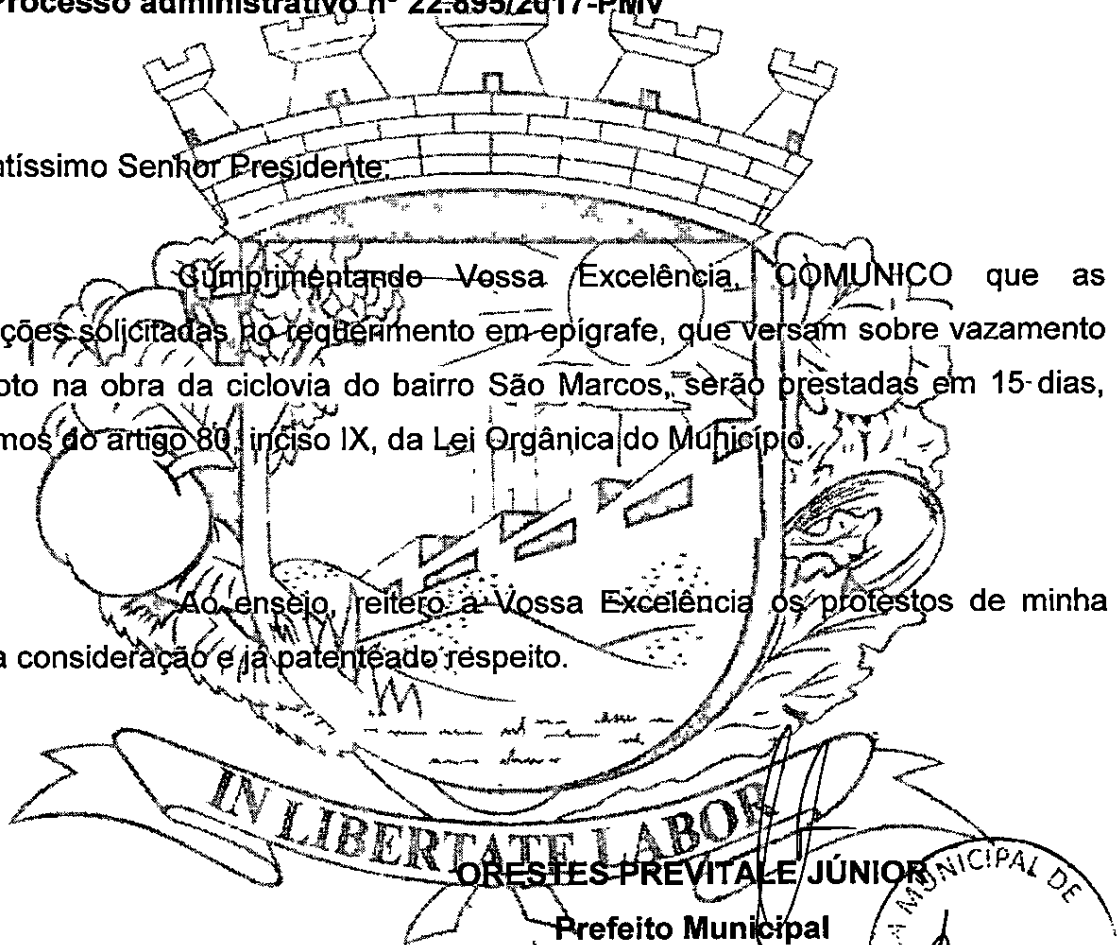 Processo administrativo nº 22.895/2017-PMV
tíssimo Senhor Presidente:
Cumprimentando Vossa Excelência, COMUNICO que as
ções solicitadas no requerimento em epígrafe, que versam sobre vazamento
oto na obra da ciclovia do bairro São Marcos, serão prestadas em 15 dias,
mos do artigo 80, inciso IX, da Lei Orgânica do Município.
Ao ensejo, reitero a Vossa Excelência os protestos de minha
a consideração e já patenteado respeito.
IN LIBERTATE LABOR
ORESTES PREVITALE JÚNIOR
Prefeito Municipal
A MUNICIPAL DE